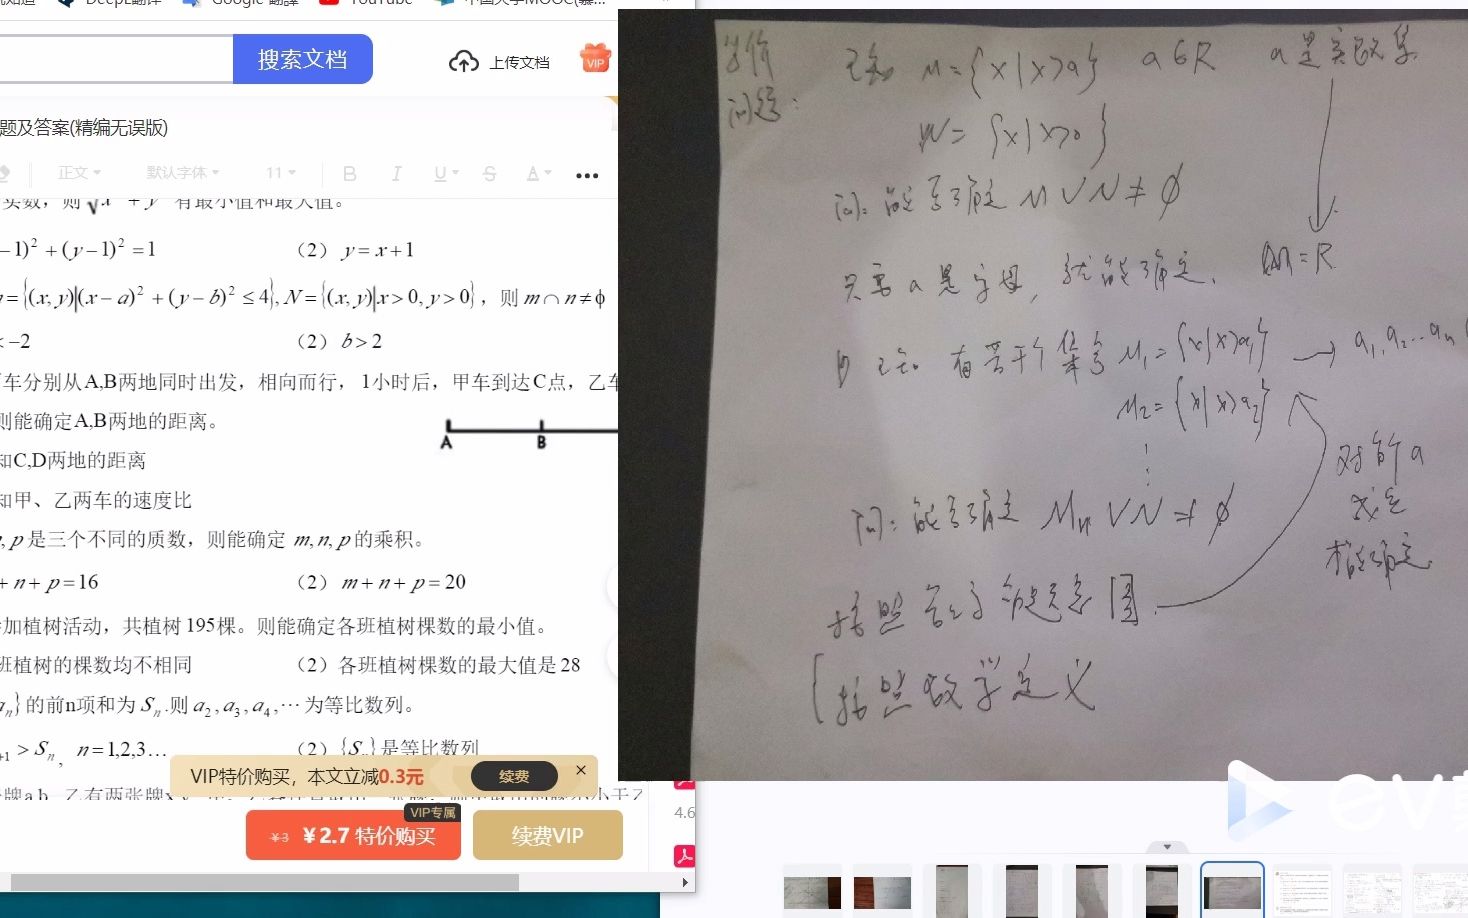 DeepL翻译 Google 翻譯 YouTube 中国大学MOOC(慕...
搜索文档
上传文档
VIP
题及答案(精编无误版)
正文 默认字体 11 B I U S A •••
实数，则 √x + y 有最小值和最大值。
−1)² + (y−1)² = 1 （2） y = x + 1
= {(x, y)|(x − a)² + (y − b)² ≤ 4}, N = {(x, y)|x > 0, y > 0}，则 m ∩ n ≠ ϕ
< −2 （2） b > 2
车分别从A,B两地同时出发，相向而行， 1小时后，甲车到达C点，乙车
则能确定A,B两地的距离。
A B
知C,D两地的距离
知甲、乙两车的速度比
, p 是三个不同的质数，则能确定 m, n, p 的乘积。
+ n + p = 16 （2） m + n + p = 20
加植树活动，共植树 195棵。则能确定各班植树棵数的最小值。
班植树的棵数均不相同 （2）各班植树棵数的最大值是 28
aₙ} 的前n项和为 Sₙ .则 a₂ , a₃ , a₄ ,⋯ 为等比数列。
₊₁ > Sₙ , n = 1,2,3… （2） {Sₙ} 是等比数列
VIP特价购买，本文立减0.3元 续费 ×
VIP专属
¥3 ¥2.7 特价购买 续费VIP
4.6
等价
问题:
已知 M = {x|x>a} a∈R a是实数集
N = {x|x>0}
问: 能否确定 M∪N ≠ ∅
只要a是字母, 就能确定. = R
已知 有若干个集合 M₁ = {x|x>a₁} → a₁, a₂ … aₙ
M₂ = {x|x>a₂}
⋮
对所a
问: 能否确定 Mₙ∪N ≠ ∅
才能确定
按照
按照数学定义